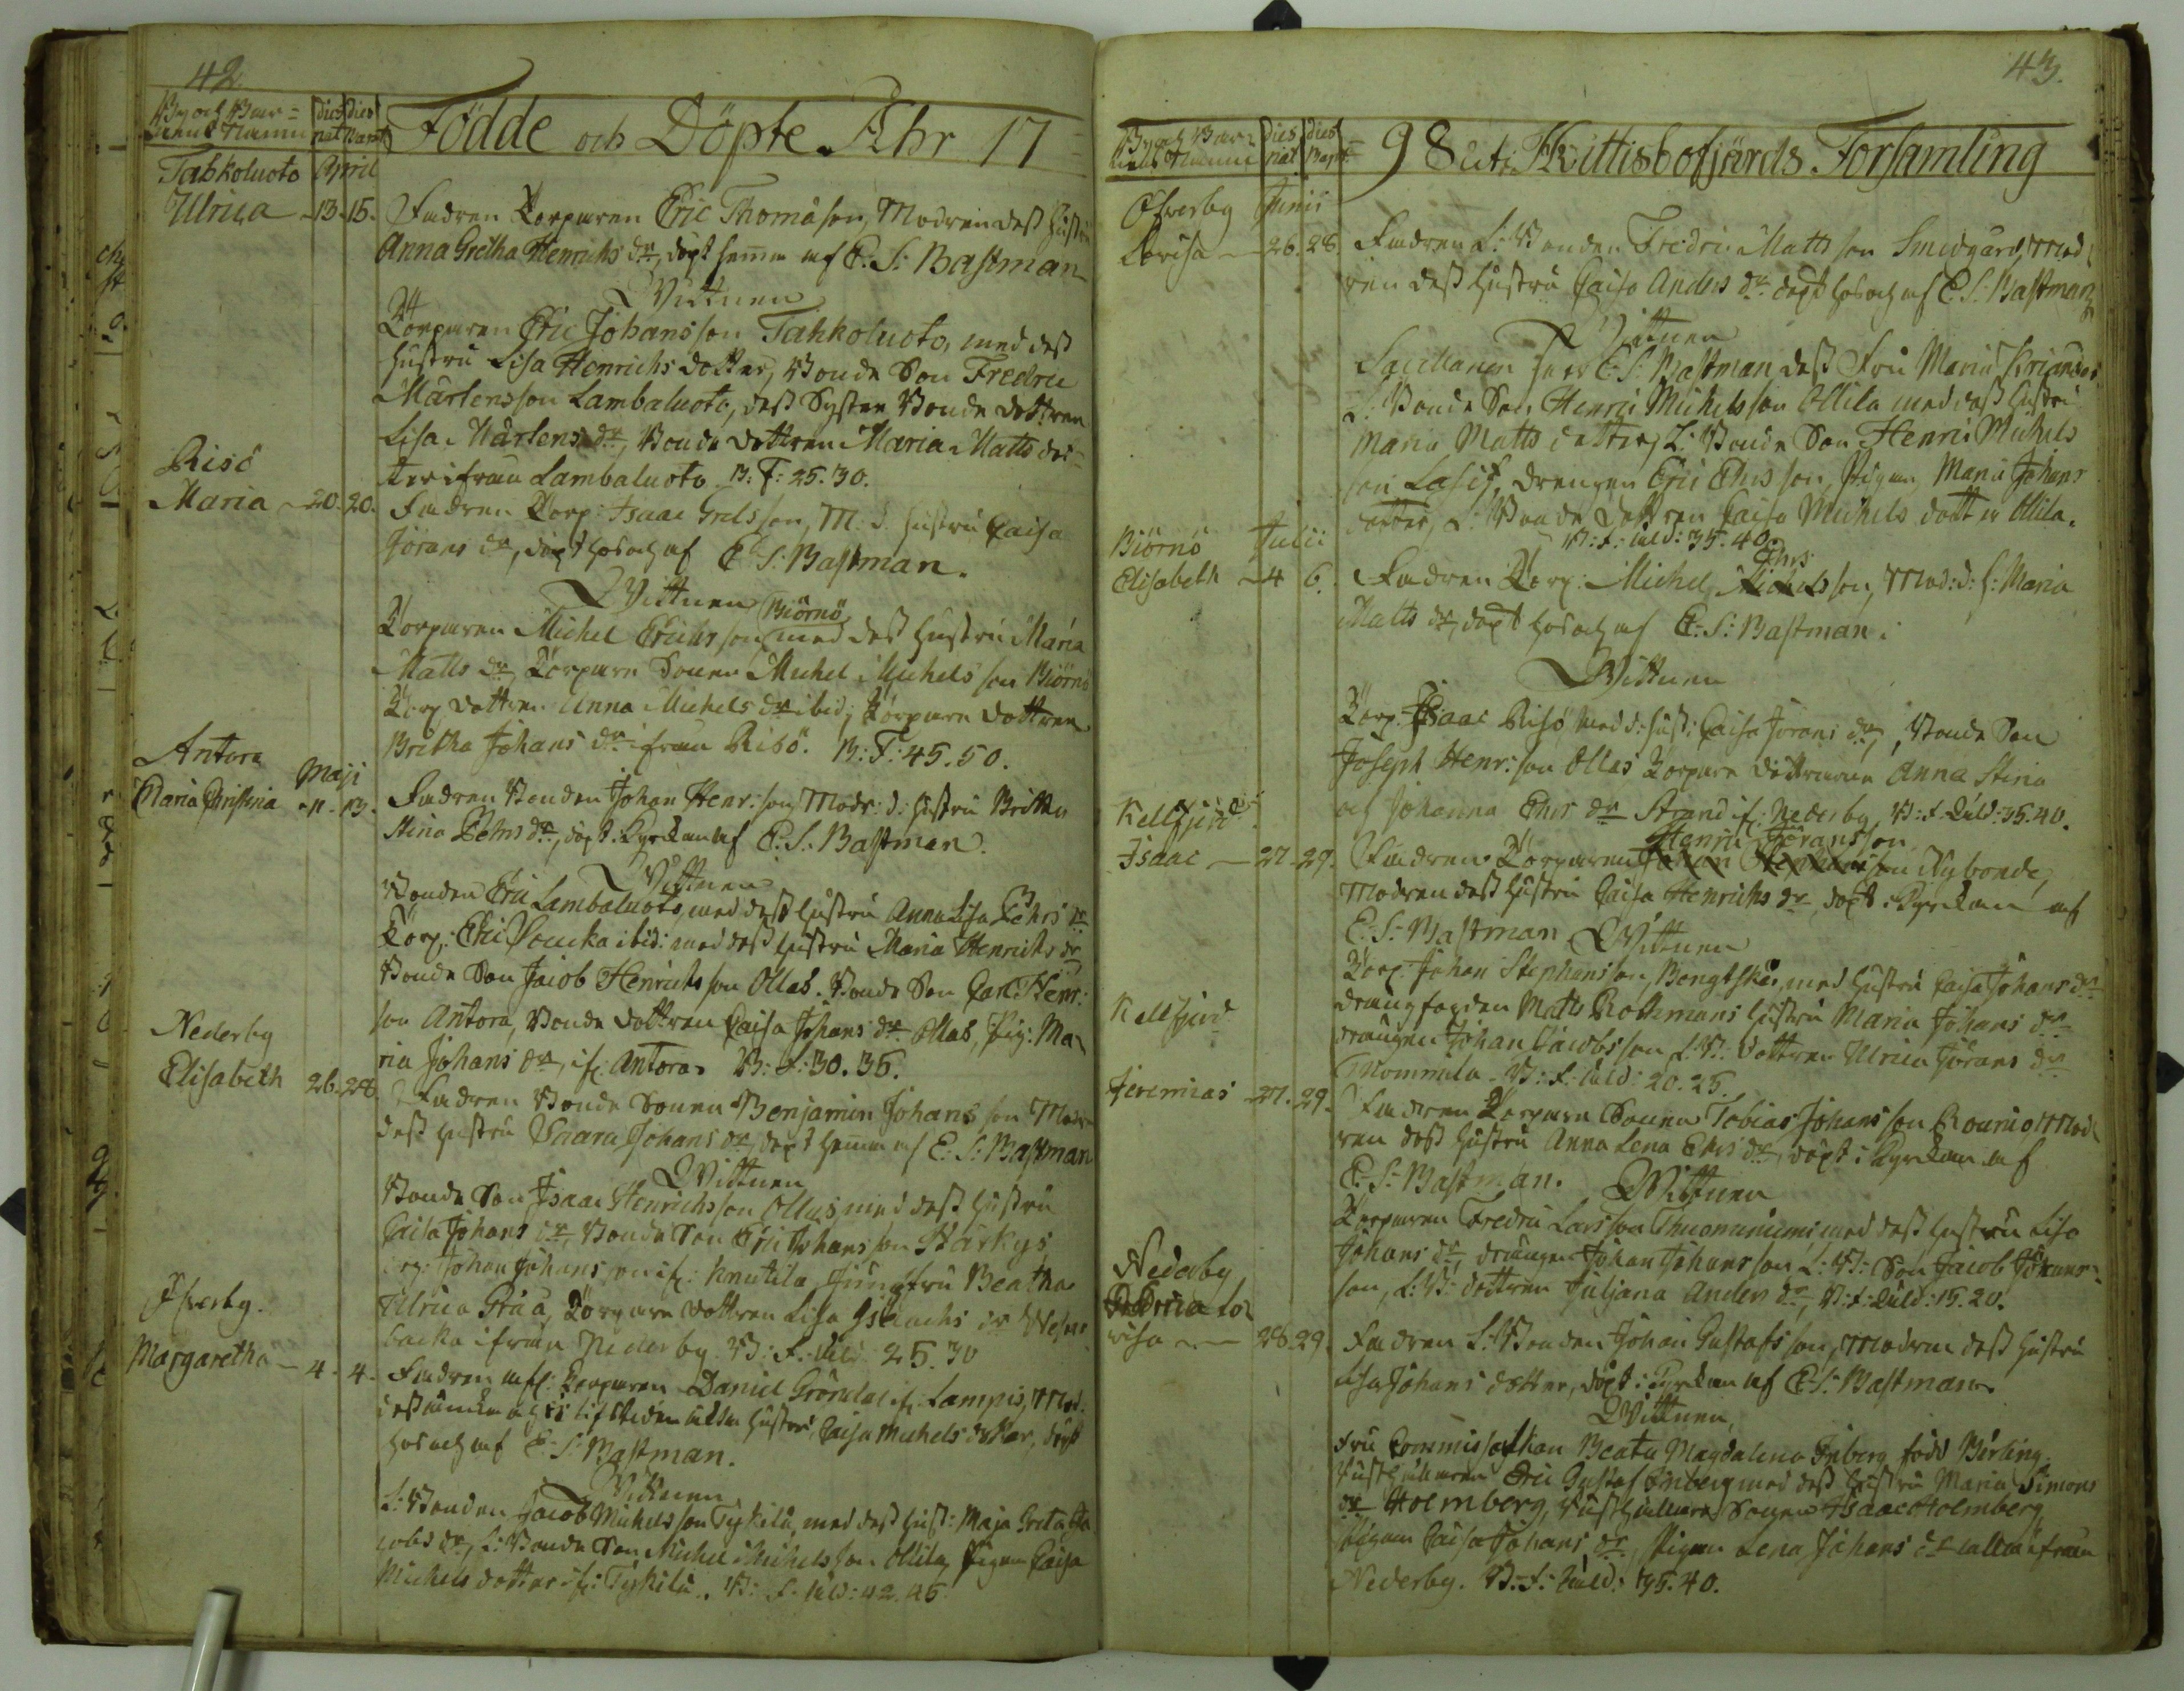 42
By och Bar-
nens Namn
dies nat
dies Bapt
Födde och Döpte Åhr 17
Tahkoluoto April
Ulrica 13. 15. Fadren Torparen Eric Thomasson, Modren dess hustru
Anna Gretha Henrichs dr, döpt hemma af E. S: Bastman
Vittnen
Torparen Eric Johansson Tahkoluoto, med dess
hustru Lisa Henrichs dotter, Bonde Son Fredric
Mårtensson Lambaluoto, dess Syster Bonde dottren
Lisa Mårtens dr, Bonde dottren Maria Matts dot-
ter ifrån Lambaluoto. B: F: 25. 30.
Risö
Maria 20. 20. Fadren Torp: Isaac Grelsson, M: d: hustru Caisa
Jörans dr, döpt hos och af E: S: Bastman.
Vittnen
Torparen Michel Erichsson Biörnö med dess hustru Maria
Matts dr, Torpare Sonen Michel Michelsson Biörnö
Torp dottren Anna Michels dr ibid; Torpare dottren
Bretha Johans dr ifrån Risö. B: F: 45. 50.
Antora Maji
Maria Christina 11. 13. Fadren Bonden Johan Henr:son, Modr: d: hustru Britha
Stina Pehrs dr, döpt i Kyrckan af E. S. Bastman.
Vittnen
Bonden Eric Lambaluoto, med dess hustru Anna Lisa Pehrs dr
Torp: Eric ibid: med dess hustru Maria Henrichs dr
Bonde Son Jacob Henrichsson Ollas. Bonde Son Carl Henr:
son Antora, Bonde dottren Caisa Johans dr Ollas, Pig: Ma-
ria Johans dr, if: Antora. B: F: 30. 35.
Nederby
Elisabeth 26. 28. Fadren Bonde Sonen Benjamin Johansson Modren
dess hustru Saara Johans dr, döpt hemma af E: S: Bastman
Vittnen
Bonde Son Isaac Henrichsson Ollas med dess hustru
Caisa Johans dr, Bonde Son Eric Johansson Härkys,
Johan Johansson if: Knutila, Jungfru Beatha
Ulrica Gråå, Torpare dottren Lisa Isaachs dr
backa ifrån Nederby. B: F: åld: 25. 30
Öfverby.
Margaretha 4. 4. Fadren afl: Torparen Daniel Gröndal if: Lampis, Mod:
dess änka och hustru Caisa Michels dotter, döpt
hos och af E: S: Bastman.
Vittnen
L: Bonden Jacob Michelsson Tyskilä, med dess hust: Maja Greta Ja-
cobs dr, L: Bonde Son Michel Michelsson Ollila, Pigan Caisa
Michels dotter if: Tyskilä. B: F: åld: 42. 45
43.
By och Bar-
nens Namn
dies nat
dies Bapt
98 uti Hvittisbofjärds Församling
Öfverby Junii
Lovisa 26. 28. Fadren L: Bonden Fredric Mattsson Smedgård, Mod-
ren dess hustru Caisa Anders dr döpt hos och af E. S: Bastman
Vittnen
Sacellanen Herr E: S: Bastman dess Fru Maria Kriander
L: Bonde Son Henric Michelsson Ollila med dess hustru
Maria Matts dotter, L: Bonde Son Henric Michels
son Lasig, drengen Eric Ehrsson, Pigan Maria Johans
dotter, L: Bonde dottren Caisa Michels dotter Ollila.
B: F: åld: 35. 40.
Biörnö Julii
Elisabeth 4 6. Fadren Torp: Michel Ehrsson, Mod: d: h: Maria
Matts dr, döpt hos och af E: S: Bastman.
Vittnen
Torp: Isaac Risö med d: hust: Caisa Jörans dr, Bonde Son
Joseph Henr:son Ollas Torpare döttrarne Anna Stina
och Johanna Ehrs dr Strand if: Nederby. B: F: åld: 35. 40.
Kellfjerd
Isaac 27. 29. Fadren Torparen Henric Jöransson Nybonde,
Modren dess hustru Caisa Henrichs dr, döpt i Kyrckan af
E: S: Bastman Vittnen
Torp: Johan Stephansson, Bengtskär, med hustru Caisa Johans dr
drengfogden Matts Rothmans hustru Maria Johans dr
drengen Johan Jacobsson L: B: dottren Ulrica Jörans dr
Mommila. B: F: åld: 20. 25.
Kellfjerd
Jeremias 27. 29. Fadren Torpare Sonen Tobias Johansson Rounio, Mod-
ren dess hustru Anna Lena Ehrs dr, döpt i Kyrckan af
E: S: Bastman. Vittnen
Torparen Fredric Larsson Thuomaniemi med dess hustru Lisa
Johans dr, drängen Johan Johansson L: B: Son Jacob Johans-
son, L: B: dottren Juliana Anders dr, B: F: åld: 15. 20.
Nederby
Lo-
visa 28. 29. Fadren L: Bonden Johan Gustafsson, Modren dess hustru
Lisa Johans dotter, döpt i Kyrckan af E: S: Bastman.
Vittnen,
Fru Commissarskan Beata Magdalena Inberg född Berling
Rusthållaren Eric Gustaf Enberg med dess hustru Maria Simons
dr Holmberg, Rusthållare Sonen Isaac Holmberg,
Pigan Caisa Johans dr, Pigan Lena Johans dr alla ifrån
Nederby. B: F: åld: 35. 40.